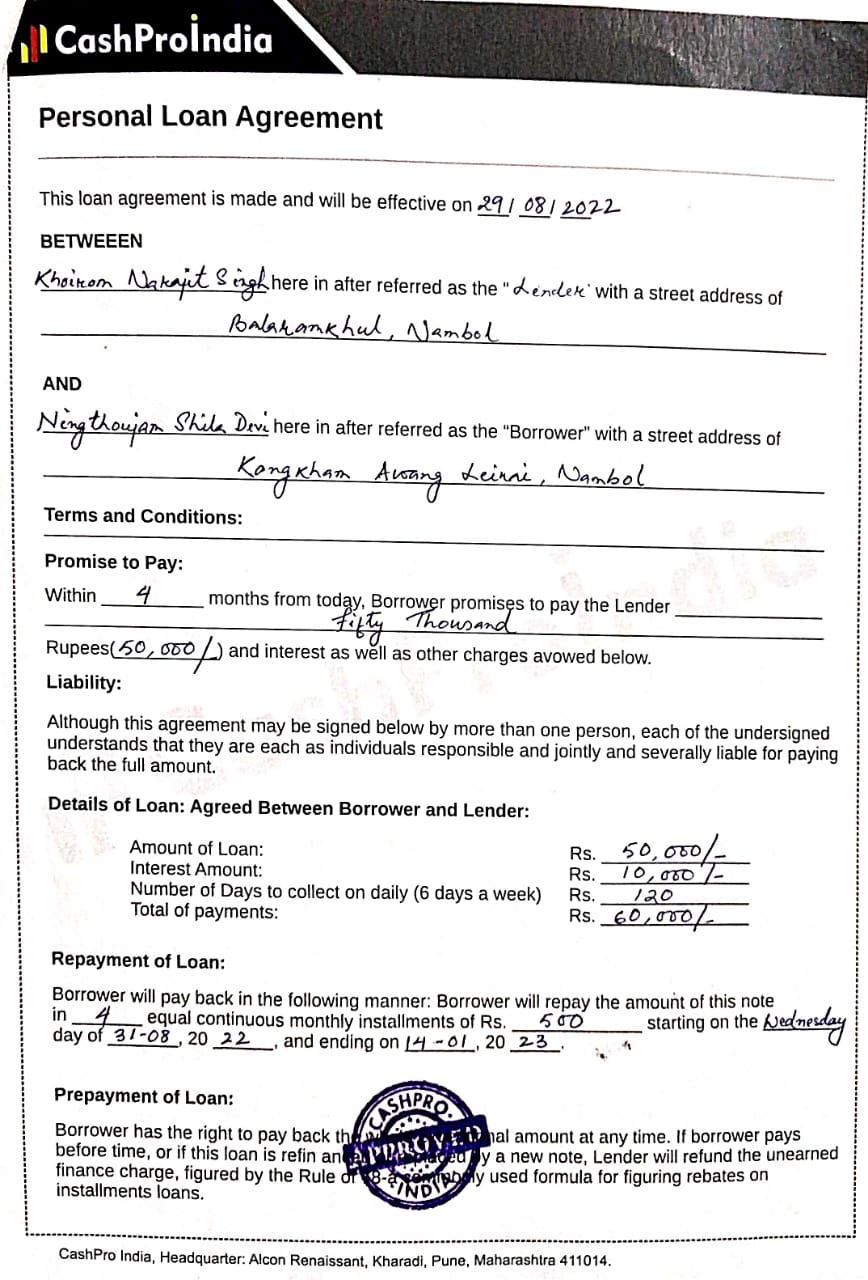 CashProindia
Personal Loan Agreement
This loan agreement is made and will be effective on 29/ 08/ 2022
BETWEEEN
Khoirom Nakajit Singh here in after referred as the "Lender" with a street address of
Balaramkhul, Nambol
AND
Ningthoujam Shila Devi here in after referred as the "Borrower" with a street address of
Kongkham Awang Leirni, Nambol
Terms and Conditions:
Promise to Pay:
Within 4 months from today, Borrower promises to pay the Lender
Fifty Thousand
Rupees(50,000/-) and interest as well as other charges avowed below.
Liability:
Although this agreement may be signed below by more than one person, each of the undersigned
understands that they are each as individuals responsible and jointly and severally liable for paying
back the full amount.
Details of Loan: Agreed Between Borrower and Lender:
Amount of Loan: Rs. 50,000/-
Interest Amount: Rs. 10,000/-
Number of Days to collect on daily (6 days a week) Rs. 120
Total of payments: Rs. 60,000/-
Repayment of Loan:
Borrower will pay back in the following manner: Borrower will repay the amount of this note
in 4 equal continuous monthly installments of Rs. 500 starting on the Wednesday
day of 31-08, 20 22, and ending on 14-01, 20 23.
Prepayment of Loan:
CASHPRO
Borrower has the right to pay back th nal amount at any time. If borrower pays
APPROVED
before time, or if this loan is refin an y a new note, Lender will refund the unearned
finance charge, figured by the Rule of 78-a ly used formula for figuring rebates on
INDIA
installments loans.
CashPro India, Headquarter: Alcon Renaissant, Kharadi, Pune, Maharashtra 411014.